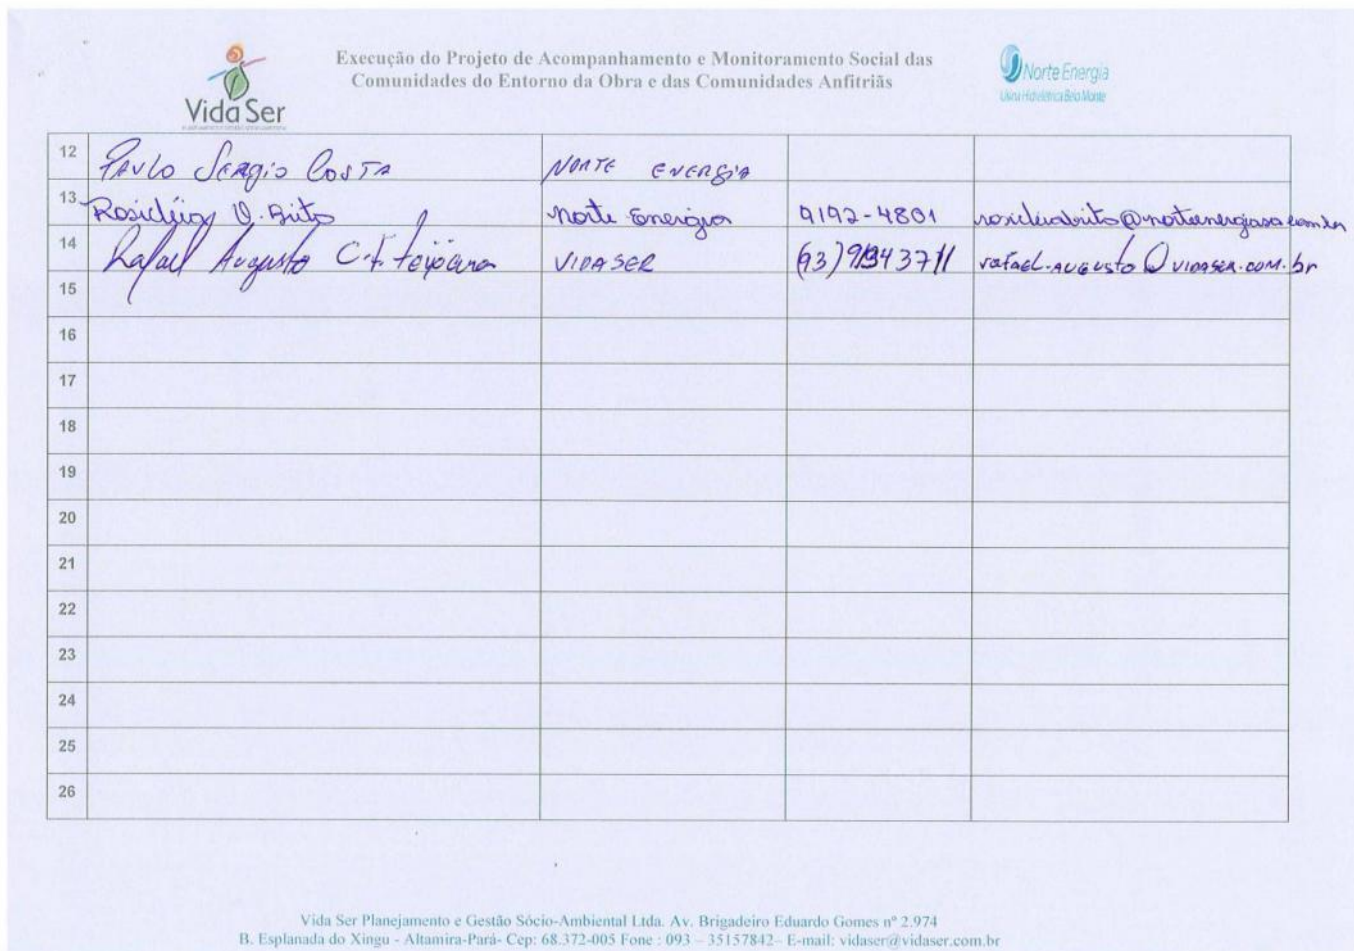 Execução do Projeto de Acompanhamento e Monitoramento Social das
Comunidades do Entorno da Obra e das Comunidades Anfitriãs
Vida Ser
Norte Energia
Usina Hidrelétrica Belo Monte
12 PAULO SERGIO COSTA NORTE ENERGIA
13 Rosicléia V. Brito Norte Energia 9192-4801 rosicleiabrito@norteenergiasa.com.br
14 Rafael Augusto C.F. VIDASER rafael.AUGUSTO@VIDASER.COM.br
15
16
17
18
19
20
21
22
23
24
25
26
Vida Ser Planejamento e Gestão Sócio-Ambiental Ltda. Av. Brigadeiro Eduardo Gomes nº 2.974
B. Esplanada do Xingu - Altamira-Pará- Cep: 68.372-005 Fone : 093 – 35157842– E-mail: vidaser@vidaser.com.br